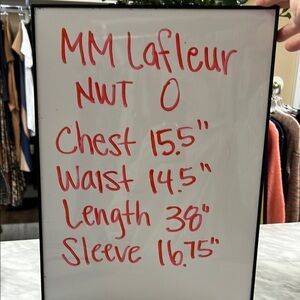 MM Lafleur
NWT 0
Chest 15.5"
Waist 14.5"
Length 38"
Sleeve 16.75"